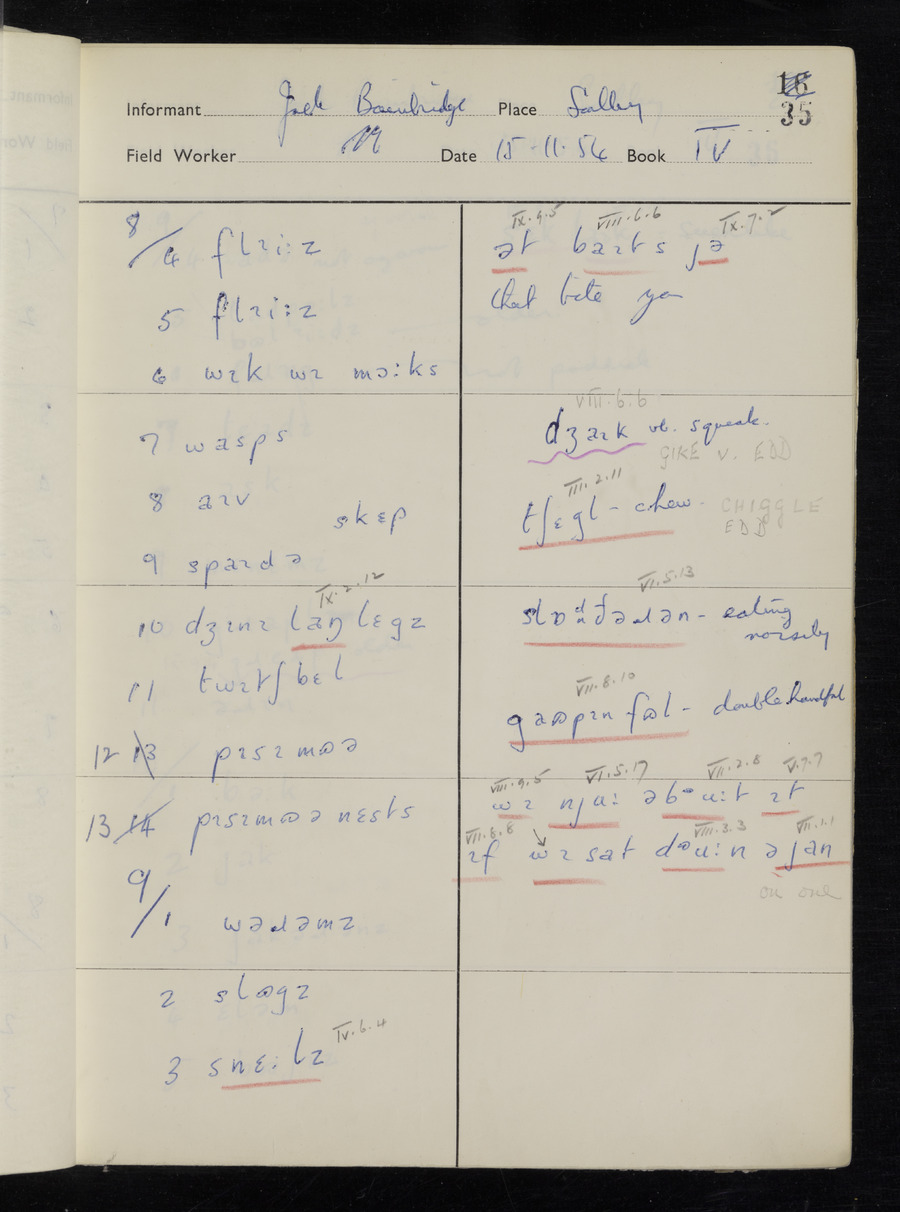 16
35
Informant Jack Bainbridge Place Soulby
Field Worker Date 15·11·54 Book IV
8/4 flɪiːz
5 flɪiːz
6 wɪk wɪ mɔːks
7 wasps
8 aɪv
skɛp
9 spaɪdə
IX.2.12
10 dʒɪnɪ laŋ lɛgz
11 twɪtʃbɛl
12 13 pɪsɪmʊə
13 14 pɪsɪmʊə nɛsts
9/1 wəɹəmz
2 slʊgz
3 snɛːlz IV.6.4
IX.9.5 VIII.6.6 IX.7.2
ət baɪts jə
that bite you
VIII.6.6
dʒaɪk vb. squeak.
GIKE V. EDD
III.2.11
tʃɛgl - chew.
CHIGGLE
EDD
VI.5.13
- eating
noisily
VII.8.10
gaʊpɪn fʊl - double handful
VIII.9.5 VI.5.17 VII.2.8 V.7.7
wɪ njuː əbᵊuːt ɪt
VII.8.8 VIII.3.3 VII.1.1
ɪf wɪ sat dᵊuːn ə jan
on one